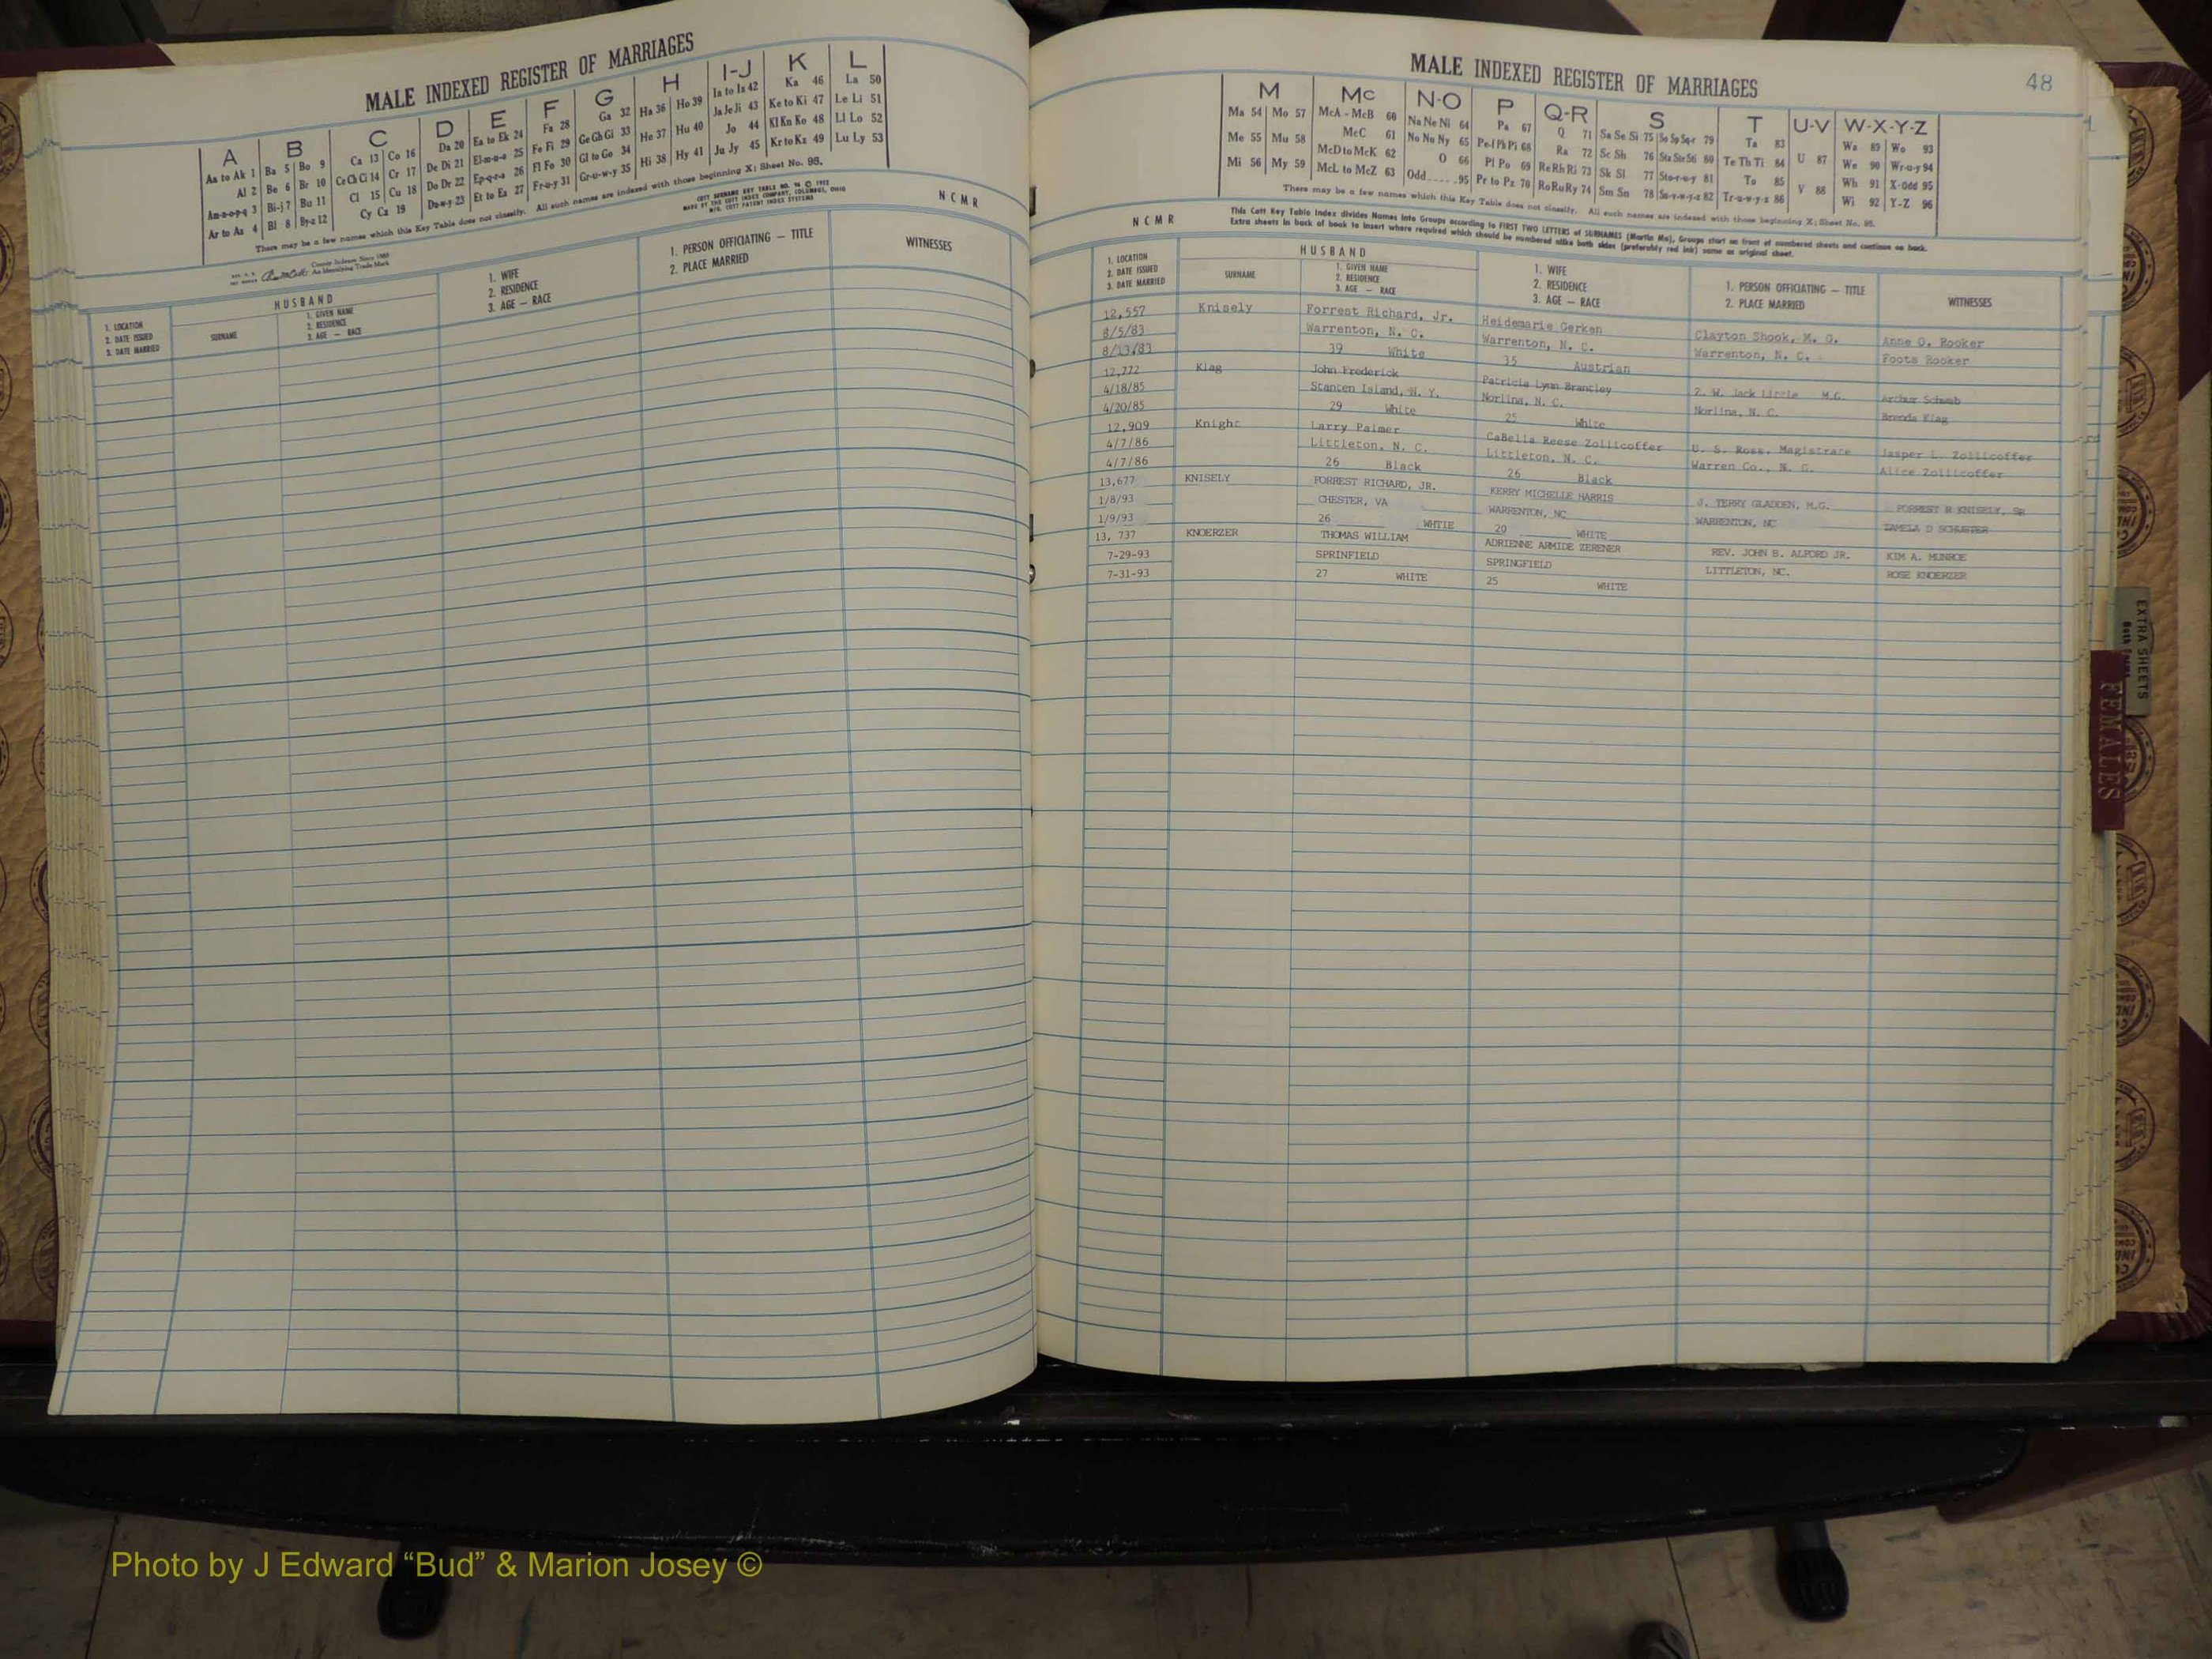 MALE INDEXED REGISTER OF MARRIAGES
A B C D E F G H I-J K L
Aa to Ak 1 Ba 5 Bo 9 Ca 13 Co 16 Da 20 Ea to Ek 24 Fa 28 Ga 32 Ha 36 Ho 39 Ia to Iz 42 Ka 46 La 50
Al 2 Be 6 Br 10 Ce Ch Ci 14 Cr 17 De Di 21 El-m-n-o 25 Fe Fi 29 Ge Gh Gi 33 He 37 Hu 40 Ja Je Ji 43 Ke to Ki 47 Le Li 51
Am-n-o-p-q 3 Bi-j 7 Bu 11 Cl 15 Cu 18 Do Dr 22 Ep-q-r-s 26 Fl Fo 30 Gl to Go 34 Hi 38 Hy 41 Jo 44 Kl Kn Ko 48 Ll Lo 52
Ar to Az 4 Bl 8 By-z 12 Cy Cz 19 Du-w-y 23 Et to Ez 27 Fr-u-y 31 Gr-u-w-y 35 Ju Jy 45 Kr to Kz 49 Lu Ly 53
There may be a few names which this Key Table does not classify. All such names are indexed with those beginning X; Sheet No. 95.
COTT SURNAME KEY TABLE NO. 96 © 1952
MADE BY THE COTT INDEX COMPANY, COLUMBUS, OHIO
M/G. COTT PATENT INDEX SYSTEMS
N C M R
County Indexes Since 1888
An Identifying Trade Mark
1. LOCATION
2. DATE ISSUED
3. DATE MARRIED
HUSBAND
SURNAME
1. GIVEN NAME
2. RESIDENCE
3. AGE — RACE
1. WIFE
2. RESIDENCE
3. AGE — RACE
1. PERSON OFFICIATING — TITLE
2. PLACE MARRIED
WITNESSES
MALE INDEXED REGISTER OF MARRIAGES
48
M Mc N-O P Q-R S T U-V W-X-Y-Z
Ma 54 Mo 57 McA - McB 60 Na Ne Ni 64 Pa 67 Q 71 Sa Se Si 75 So Sp Sq-r 79 Ta 83 Wa 89 Wo 93
Me 55 Mu 58 McC 61 No Nu Ny 65 Pe-f Ph Pi 68 Ra 72 Sc Sh 76 Sta Ste Sti 80 Te Th Ti 84 U 87 We 90 Wr-u-y 94
McD to McK 62 O 66 Pl Po 69 Re Rh Ri 73 Sk Sl 77 Sto-r-u-y 81 To 85 Wh 91 X-Odd 95
Mi 56 My 59 McL to McZ 63 Odd 95 Pr to Pz 70 Ro Ru Ry 74 Sm Sn 78 Su-v-w-y-z 82 Tr-u-w-y-z 86 V 88 Wi 92 Y-Z 96
There may be a few names which this Key Table does not classify. All such names are indexed with those beginning X; Sheet No. 95.
N C M R
This Cott Key Table Index divides Names into Groups according to FIRST TWO LETTERS of SURNAMES (Martin Ma), Groups start on front of numbered sheets and continue on back.
Extra sheets in back of book to insert where required which should be numbered alike both sides (preferably red ink) same as original sheet.
1. LOCATION
2. DATE ISSUED
3. DATE MARRIED
HUSBAND
SURNAME
1. GIVEN NAME
2. RESIDENCE
3. AGE — RACE
1. WIFE
2. RESIDENCE
3. AGE — RACE
1. PERSON OFFICIATING — TITLE
2. PLACE MARRIED
WITNESSES
12,557 Knisely Forrest Richard, Jr. Heidemarie Gerken Clayton Shook, M. G. Anne O. Rooker
8/5/83 Warrenton, N. C. Warrenton, N. C. Warrenton, N. C. Foots Rooker
8/13/83 39 White 35 Austrian
12,772 Klag John Frederick Patricia Lynn Brantley Z. W. Jack Little M.G. Arthur Schwab
4/18/85 Stanten Island, N. Y. Norlina, N. C. Norlina, N. C. Brenda Klag
4/20/85 29 White 25 White
12,909 Knight Larry Palmer CaBella Reese Zollicoffer U. S. Ross, Magistrate Jasper L. Zollicoffer
4/7/86 Littleton, N. C. Littleton, N. C. Warren Co., N. C. Alice Zollicoffer
4/7/86 26 Black 26 Black
13,677 KNISELY FORREST RICHARD, JR. KERRY MICHELLE HARRIS J. TERRY GLADDEN, M.G. FORREST R KNISELY, SR
1/8/93 CHESTER, VA WARRENTON, NC WARRENTON, NC PAMELA D SCHUSTER
1/9/93 26 WHTIE 20 WHITE
13, 737 KNOERZER THOMAS WILLIAM ADRIENNE ARMIDE ZERENER REV. JOHN B. ALFORD JR. KIM A. MUNROE
7-29-93 SPRINFIELD SPRINGFIELD LITTLETON, NC. ROSE KNOERZER
7-31-93 27 WHITE 25 WHITE
EXTRA SHEETS
FEMALES
Photo by J Edward “Bud” & Marion Josey ©